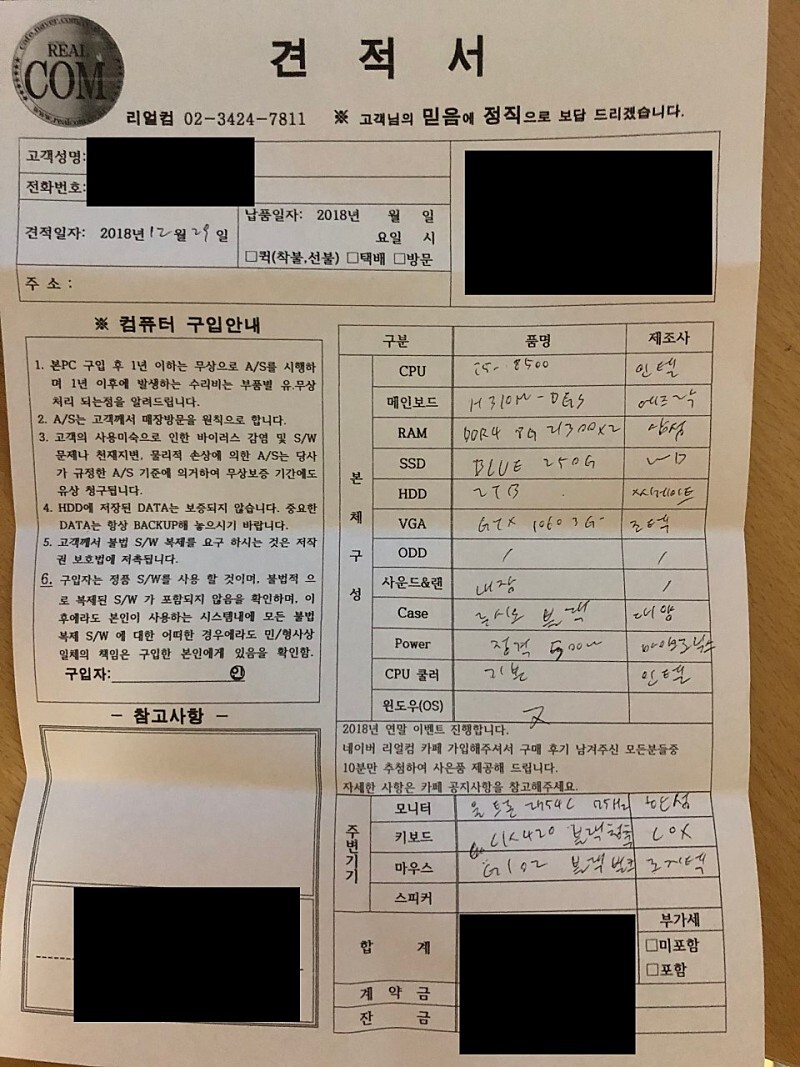 cafe.naver.com
REAL
COM
견 적 서
리얼컴 02-3424-7811 ※ 고객님의 믿음에 정직으로 보답 드리겠습니다.
고객성명:
전화번호:
견적일자: 2018년 12월 29일
납품일자: 2018년 월 일
요일 시
□퀵(착불,선불) □택배 □방문
주 소 :
※ 컴퓨터 구입안내
1. 본PC 구입 후 1년 이하는 무상으로 A/S를 시행하
며 1년 이후에 발생하는 수리비는 부품별 유.무상
처리 되는점을 알려드립니다.
2. A/S는 고객께서 매장방문을 원칙으로 합니다.
3. 고객의 사용미숙으로 인한 바이러스 감염 및 S/W
문제나 천재지변, 물리적 손상에 의한 A/S는 당사
가 규정한 A/S 기준에 의거하여 무상보증 기간에도
유상 청구됩니다.
4. HDD에 저장된 DATA는 보증되지 않습니다. 중요한
DATA는 항상 BACKUP해 놓으시기 바랍니다.
5. 고객께서 불법 S/W 복제를 요구 하시는 것은 저작
권 보호법에 저촉됩니다.
6. 구입자는 정품 S/W를 사용 할 것이며, 불법적 으
로 복제된 S/W 가 포함되지 않음을 확인하며, 이
후에라도 본인이 사용하는 시스템내에 모든 불법
복제 S/W 에 대한 어떠한 경우에라도 민/형사상
일체의 책임은 구입한 본인에게 있음을 확인함.
구입자: 인
- 참고사항 -
구분 품명 제조사
본체구성
CPU i5-8500 인텔
메인보드 H310M-DGS 에즈락
RAM DDR4 8G 21300x2 삼성
SSD BLUE 250G WD
HDD 2TB 씨게이트
VGA GTX 1060 3G 조텍
ODD / /
사운드&랜 내장 /
Case 루시오 블랙 대양
Power 정격 500W 마이크로닉스
CPU 쿨러 기본 인텔
윈도우(OS) X
2018년 연말 이벤트 진행합니다.
네이버 리얼컴 카페 가입해주셔서 구매 후기 남겨주신 모든분들중
10분만 추첨하여 사은품 제공해 드립니다.
자세한 사항은 카페 공지사항을 참고해주세요.
주변기기
모니터 울트론 2454C 한성
키보드 CK420 블랙 청축 COX
마우스 G102 블랙 벌크 로지텍
스피커
합 계
부가세
□미포함
□포함
계 약 금
잔 금